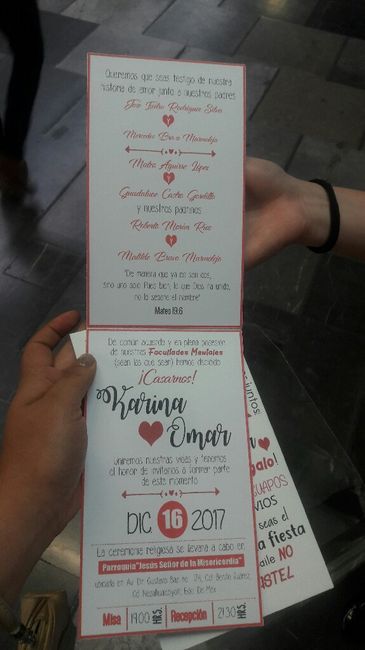 Queremos que seas testigo de nuestra
historia de amor junto a nuestros padres
José Isidro Rodríguez Silva
Mercedes Bravo Marmolejo
Matra Aguirre López
Guadalupe Castro Gordillo
y nuestros padrinos
Roberto Morán Rico
Matilde Bravo Marmolejo
"De manera que ya no son dos,
sino uno solo. Pues bien, lo que Dios ha unido,
no lo separe el hombre"
Mateo 19:6
De común acuerdo y en plena posesión
de nuestras Facultades Mentales
(sean las que sean) hemos decidido
¡Casarnos!
Karina
Omar
Uniremos nuestras vidas y tenemos
el honor de invitarlos a formar parte
de este momento
DIC 16 2017
La ceremonia religiosa se llevará a cabo en
Parroquia "Jesús Señor de la Misericordia"
ubicada en Av. Dr. Gustavo Baz no. 176, Cd. Benito Juárez,
Cd Nezahualcóyotl, Edo. De Méx.
Misa 19:00 HRS. Recepción 21:30 HRS.
juntos
galo!
GUAPOS
VIOS
seas el
a fiesta
aile NO
ASTEL